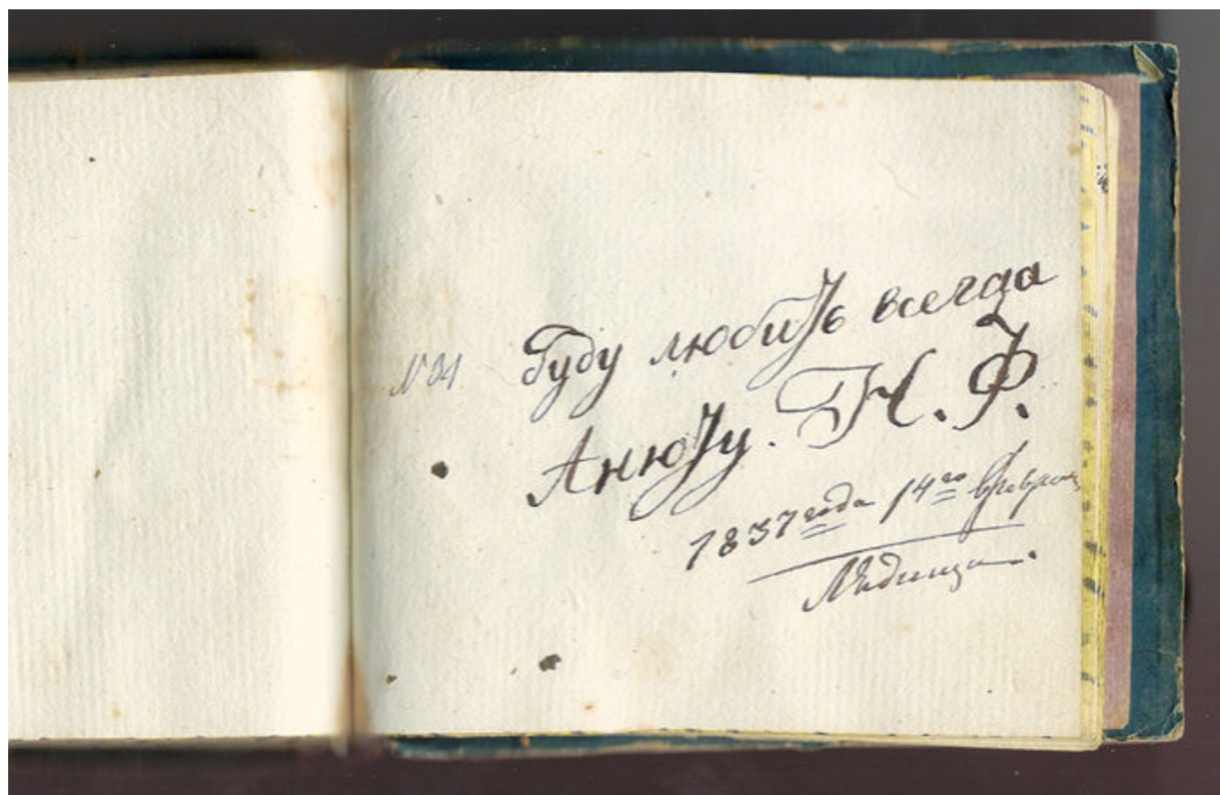 Буду любить всегда
Анюту. Н. Ф.
1837 года 14го февраля